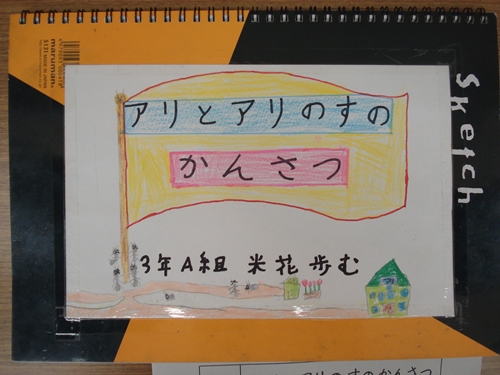 maruman.
S131 MADE IN JAPAN
Sketch
アリとアリのすの
かんさつ
3年A組 米花歩む
アリのすのかんさつ